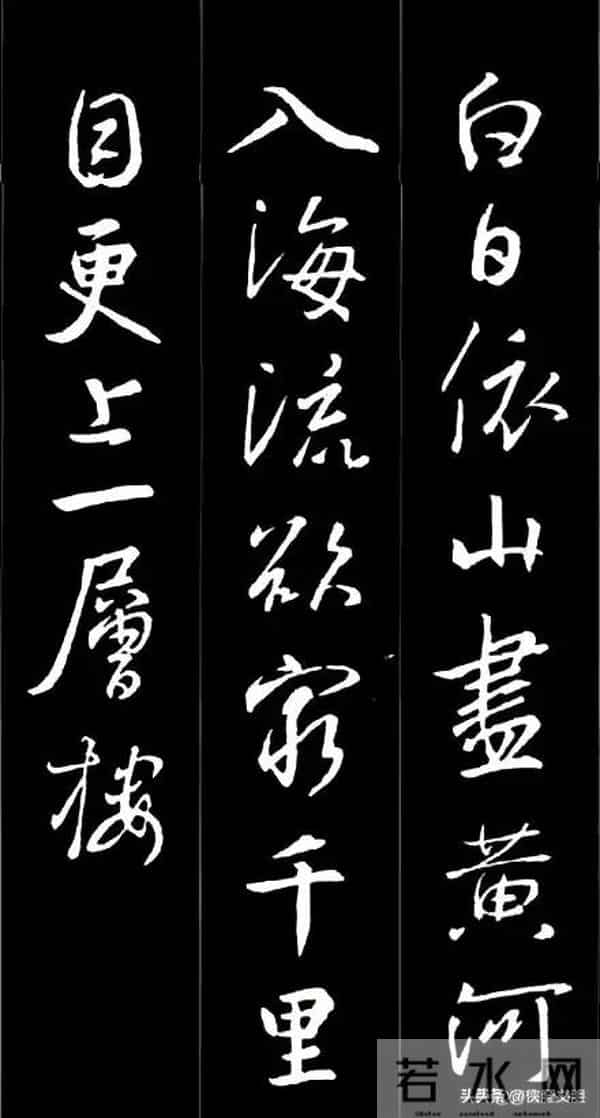 白日依山盡黄河
入海流欲窮千里
目更上一層楼
若水网